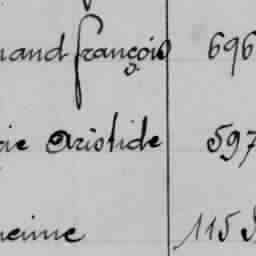 nand françois 696
ie Aristide 597
115